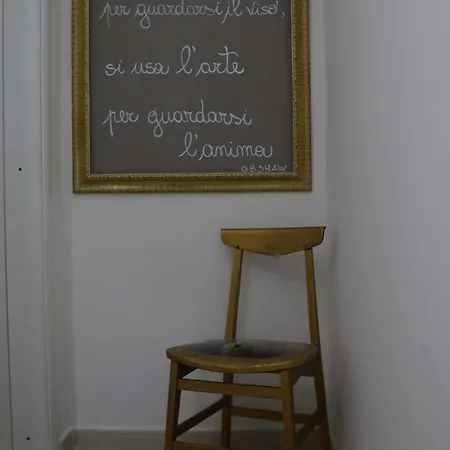 per guardarsi il viso,
si usa l'arte
per guardarsi
l'anima
G.B.SHAW